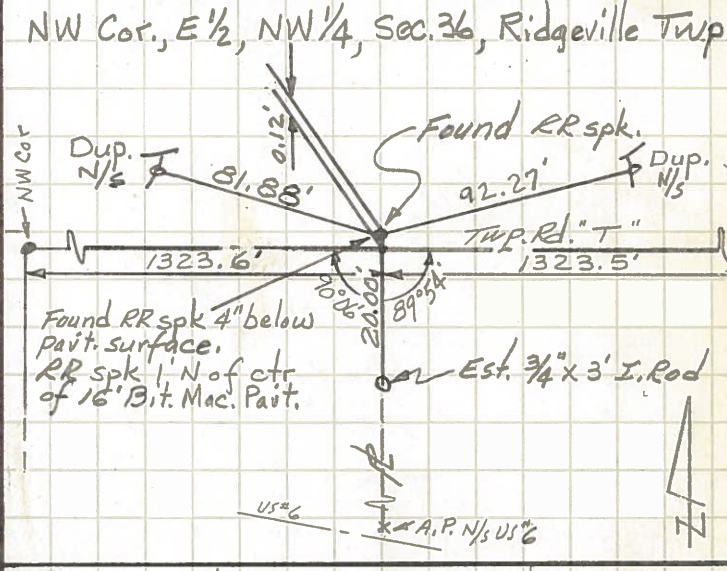 NW Cor., E 1/2, NW 1/4, Sec. 36, Ridgeville Twp
0.12'
Found RR spk.
NW Cor
Dup.
N/S
81.88'
92.27'
Dup.
N/S
Twp. Rd. "T"
1323.6'
1323.5'
90°06'
20.00'
89°54'
Found RR spk 4" below
pav't. surface.
RR spk 1' N of ctr
of 16' Bit. Mac. Pav't.
Est. 3/4" x 3' I. Rod
PL
US#6
A.P. N/S US#6
N